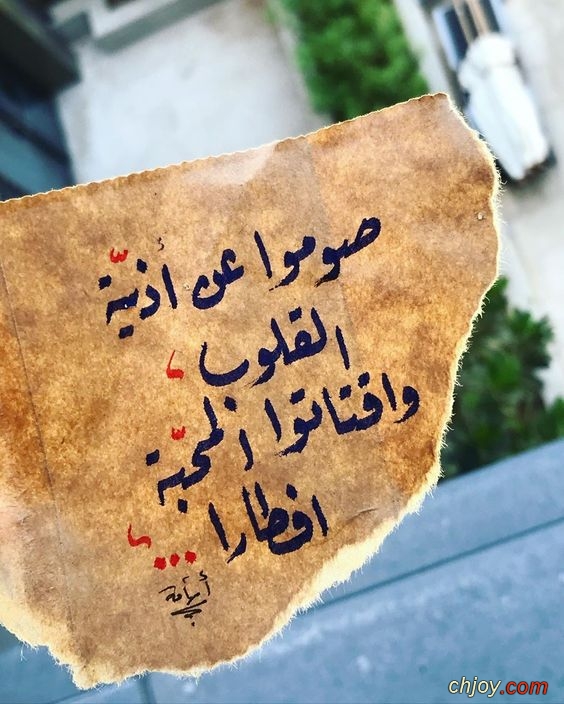 صوموا عن أذيّة
القلوب،
واقتاتوا المحبّة
افطارا ...،
chjoy.com